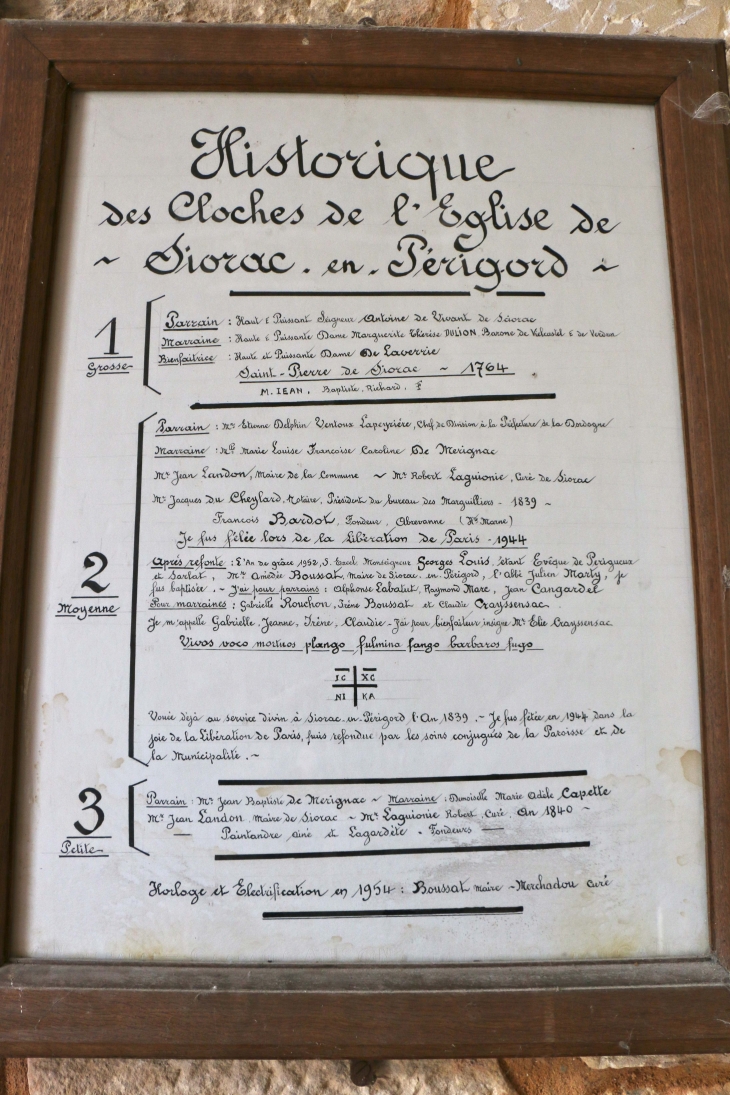 Historique
des Cloches de l'Eglise de
~ Siorac . en . Périgord ~
1
Grosse
Parrain : Haut & Puissant Seigneur Antoine de Vivant de Siorac
Marraine : Haute & Puissante Dame Marguerite Thérèse DULION, Barone de Valcastel & de Verdon
Bienfaitrice : Haute et Puissante Dame De Laverrie
Saint - Pierre de Siorac ~ 1764
M. IEAN, Baptiste, Richard,
2
Moyenne
Parrain : Mr Etienne Delphin Ventoux Lapeyrière, Chef de Division à la Préfecture de la Dordogne
Marraine : Mlle Marie Louise Françoise Caroline De Merignac
Mr Jean Landon, Maire de la Commune ~ Mr Robert Laguionie, Curé de Siorac
Mr Jacques du Cheylard, Notaire, Président du bureau des Marguilliers - 1839 ~
François Bardot, Fondeur, Abrevanne (Hte Marne)
Je fus fêlée lors de la Libération de Paris - 1944
Après refonte : L'An de grâce 1952, S. Excel. Monseigneur Georges Louis, étant Evêque de Périgueux
et Sarlat, Mr Amédée Boussat, Maire de Siorac . en . Périgord, l'Abbé Julien Marty, je
fus baptisée . - J'ai pour parrains : Alphonse Labatut, Raymond Marc, Jean Cangardel
Pour marraines : Gabrielle Rouchon, Irène Boussat et Claudie Crayssensac .
Je m'appelle Gabrielle, Jeanne, Irène, Claudie - J'ai pour bienfaiteur insigne Mr Elie Crayssensac
Vivos voco mortuos plango fulmina fango barbaros fugo
IC XC
NI KA
Vouée déjà au service divin à Siorac . en . Périgord l'An 1839 . - Je fus fêlée en 1944 dans la
joie de la Libération de Paris, puis refondue par les soins conjugués de la Paroisse et de
la Municipalité . ~
3
Petite
Parrain : Mr Jean Baptiste de Merignac ~ Marraine : Demoiselle Marie Adèle Capette
Mr Jean Landon Maire de Siorac ~ Mr Laguionie Robert, Curé, An 1840 ~
— Paintandre ainé et Lagardète . Fondeurs —
Horloge et Electrification en 1954 : Boussat Maire ~ Merchadou Curé